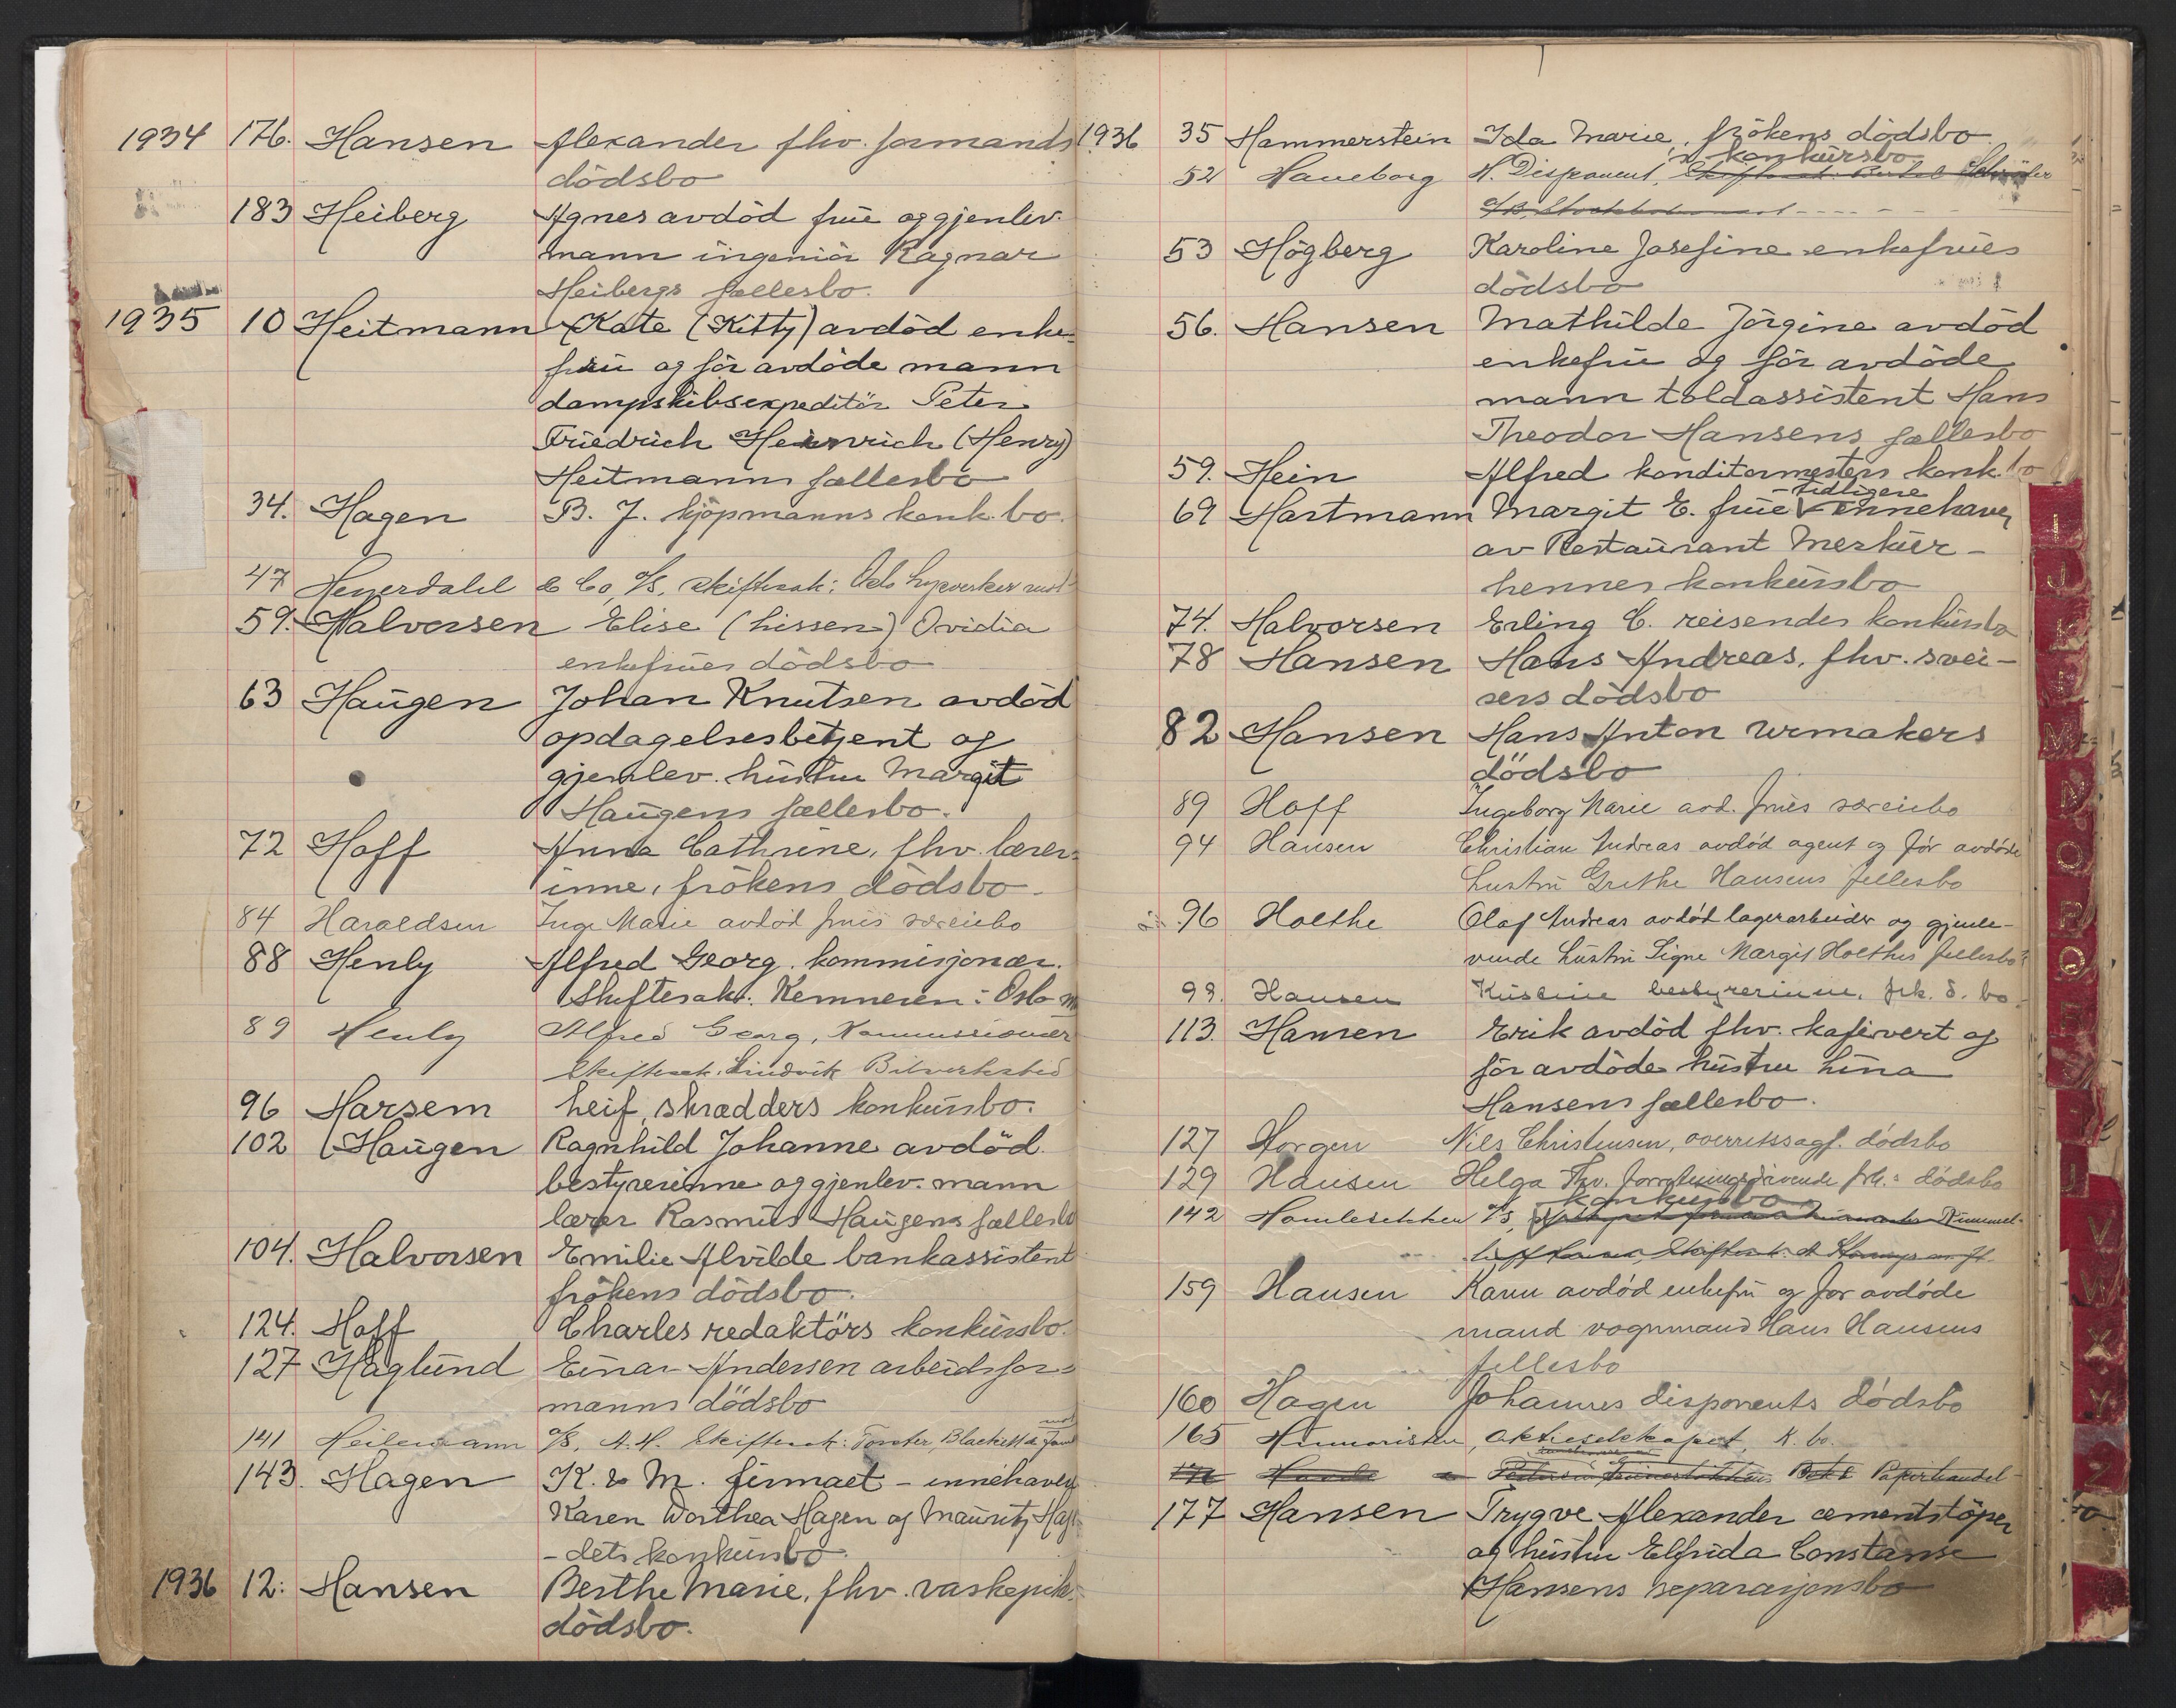 1934 176. Hansen Alexander fhv. formands
dödsbo
183 Heiberg Agnes avdöd frue og gjenlev.
mann ingeniör Ragnar
Heibergs fællesbo.
1935 10 Heitmann Kate (Kitty) avdöd enke-
frue og för avdöde mann
dampskibsexpeditör Peter
Friedrich Heinrich (Henry)
Heitmanns fællesbo
34. Hagen B. J. kjöpmanns konk. bo.
47 Heyerdahl & Co, A/S, skiftesak: Oslo
59. Halvorsen Elise (Lissen) Ovidia
enkefrues dödsbo
63 Haugen Johan Knutsen avdöd
opdagelsesbetjent og
gjenlev. hustru Margit
Haugens fællesbo.
72 Hoff Anna Cathrine, fhv. lærer-
inne, frökens dödsbo.
84 Haraldsen Inga Marie avdød frues særeiebo
88 Henly Alfred Georg. kommisjonær.
Skiftesak: Kemneren i Oslo
89 Henly Alfred Georg, Kommissionær
Skiftesak: Lindvik Bilverksted
96 Harsem Leif, skrædders konkursbo.
102 Haugen Ragnhild Johanne avdöd
bestyrerinne og gjenlev. mann
lærer Rasmus Haugens fællesbo
104. Halvorsen Emilie Alvilde bankassistent
frökens dödsbo.
124. Hoff Charles redaktörs konkursbo.
127 Haglund Einar Andersen arbeidsfor-
manns dödsbo
141 Heilemann A/S, A. H. Skiftesak: Forster, Blackett &
143. Hagen K. & M. firmaet - innehaver
Karen Dorthea Hagen og Mauritz Hag
- dets konkursbo.
1936 12: Hansen Berthe Marie, fhv. vaskepike
dödsbo.
1936 35 Hammerstein Ida Marie, frökens dödsbo
konkursbo
52 Haneborg N. Disponent,
53 Högberg Karoline Josefine enkefrues
dödsbo
56. Hansen Mathilde Jörgine avdöd
enkefrue og för avdöde
mann toldassistent Hans
Theodor Hansens fællesbo
59. Hein Alfred konditormesters konk. bo
- tidligere
69 Hartmann Margit E. frue innehaver
av Restaurant Merkur -
hennes konkursbo
74. Halvorsen Erling C. reisendes konkursbo
78 Hansen Hans Andreas, fhv. svei-
sers dödsbo
82 Hansen Hans Anton urmakers
dödsbo
89 Hoff Ingeborg Marie avd. frues særeiebo
94 Hansen Christian Andreas avdød agent og før avdøde
hustru Grethe Hansens fellesbo
96 Holthe Olaf Andreas avdød lagerarbeider og gjenle-
vende hustru Signe Margit Holthes fellesbo
98. Hansen bestyrerinne, frk. d. bo.
113. Hansen Erik avdöd fhv. kafevert og
för avdöde hustru Lina
Hansens fællesbo.
127 Horgen Nils Christensen, overrettssagf. dødsbo
129 Hansen Helga Fhv. forretningsdrivende frk.s dødsbo
konkursbo
142 A/S,
159 Hansen Karen avdød enkefru og før avdøde
mand vognmand Hans Hansens
fellesbo
160 Hagen Johannes disponents dødsbo
165 Humoristen, aktieselskapet, K. bo.
177 Hansen Trygve Alexander cementstöper
og hustru Elfrida Constanse
Hansens separasjonsbo
I
J
K
L
M
N
O
P
Q
R
S
T
U
V
W
X
Y
Z